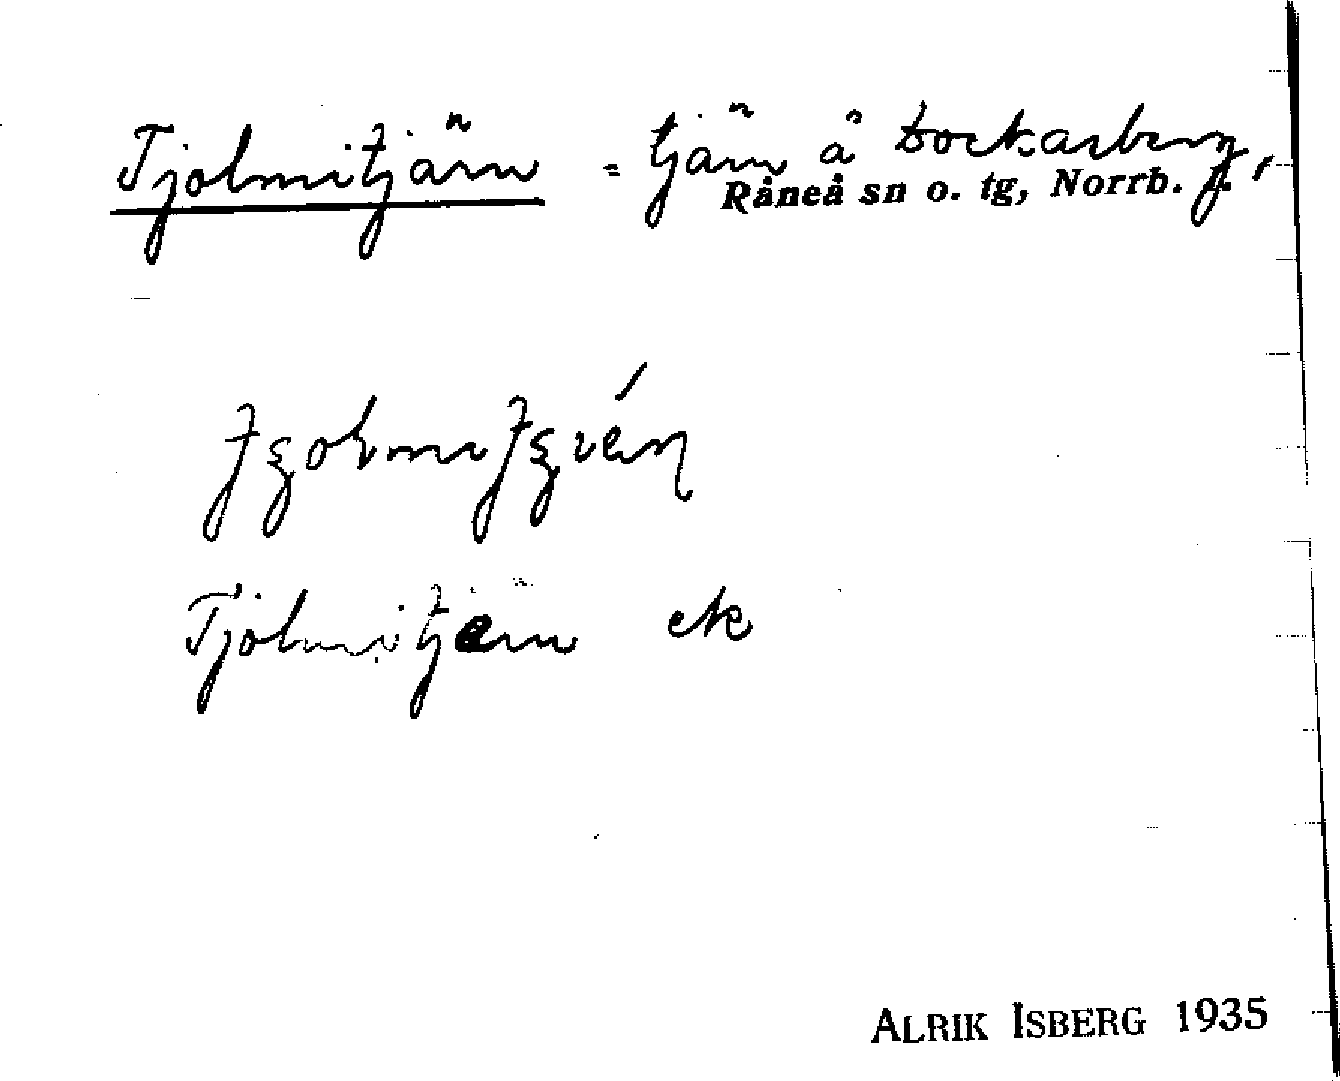 Tjolmitjärn = tjärn å Dockasberg,
Råneå sn o. tg, Norrb. l.
Tjolmitjärn ek
ALRIK ISBERG 1935